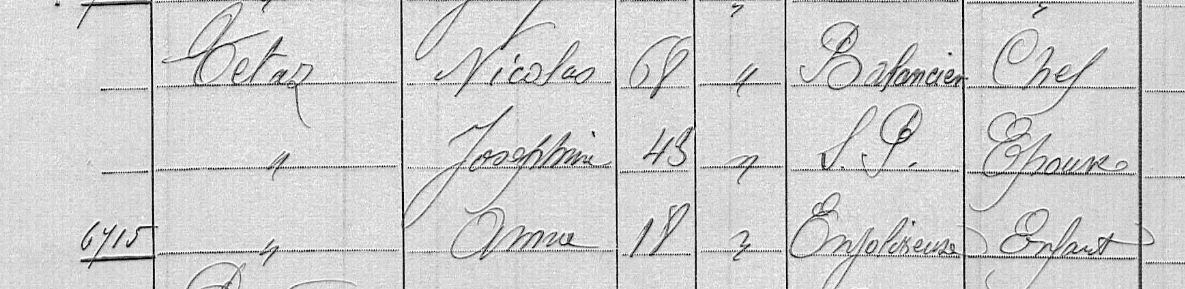 Tetaz Nicolas 68 " Balancier Chef
" Joséphine 43 " S. P. Epouse
6715 " Anna 18 " Enjoliveuse Enfant